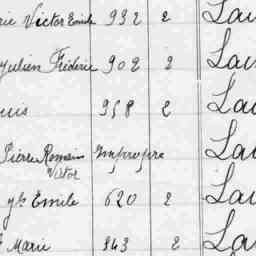 Victor Emile 932 2 Lau
Julien Fréderic 902 2 Lau
958 2 Lau
Pierre Romain Impropre Lau
Victor
Emile 620 2 Lau
Marie 843 2 Lau